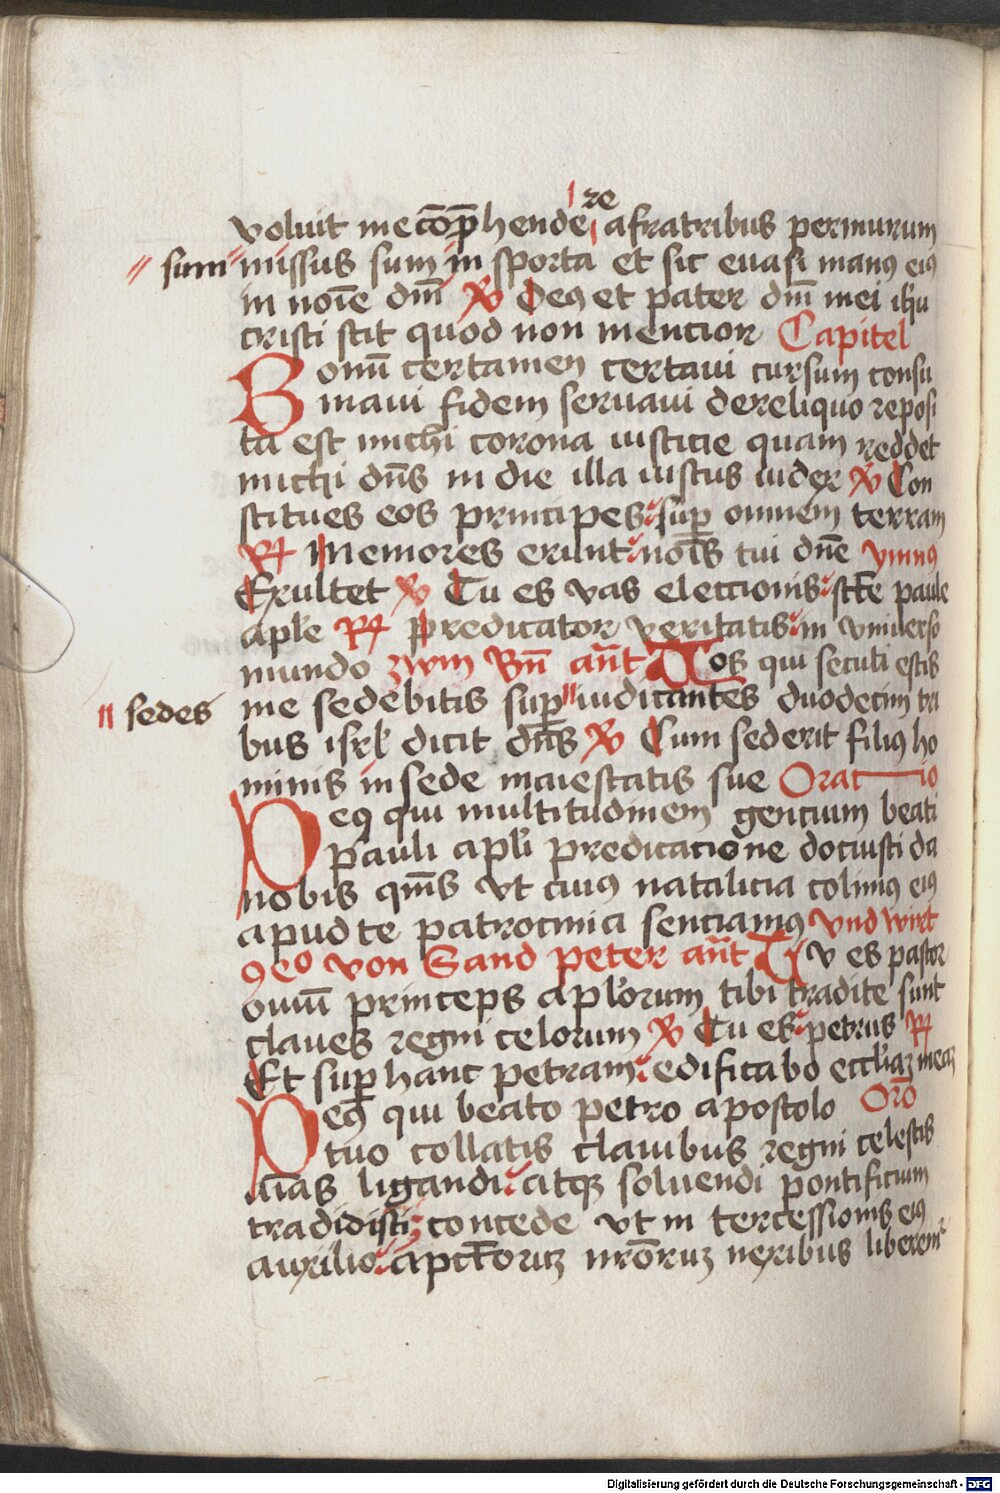 re
voluit me cōp̄hende a fratribus per murum
sum missus sum in sporta et sic euasi manꝰ eiꝰ
in noīe dn̄i ℣ Deꝰ et pater dn̄i mei ihu
cristi scit quod non mencior Capitel
Bonū certamen certaui cursum consu
maui fidem seruaui de reliquo reposi
ta est michi corona iusticie quam reddet
michi dn̄s in die illa iustus iudex ℣ Con
stitues eos principes sup omnem terram
℟ Memores erunt nōis tui dn̄e ymnꝰ
Exultet ℣ Tu es vas eleccionis sc̄te paule
aple ℟ predicator veritatis in vniuerso
mundo zwm Bn̄ an̄t Uos qui secuti estis
sedes me sedebitis sup iudicantes duodecim tri
bus isrł dicit dn̄s ℣ Cum sederit filiꝰ ho
minis in sede maiestatis sue Oratio
Deꝰ qui multitudinem gencium beati
pauli apłi predicacione docuisti da
nobis qm̄s vt cuiꝰ natalicia colimꝰ eiꝰ
apud te patrocinia senciamꝰ vnd wirt
9eo von Sand peter an̄t Tu es pastor
ouiū princeps apłorum tibi tradite sunt
claues regni celorum ℣ Tu es petrus ℟
Et sup hanc petram edificabo eccłiaꝫ meaꝫ
Deꝰ qui beato petro apostolo Orō
tuo collatis clauibus regni celestis
aīas ligandi atqꝫ soluendi pontificium
tradidisti concede vt in tercessionis eiꝰ
auxilio a pctōrꝫ nrōrꝫ nexibus liberemʳ
Digitalisierung gefördert durch die Deutsche Forschungsgemeinschaft - DFG